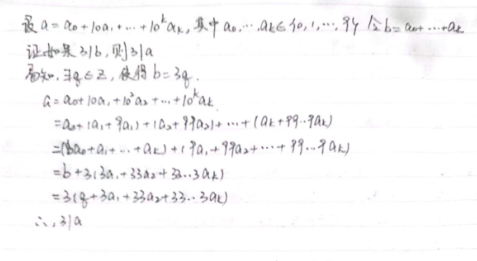 设a=a₀+10a₁+…+10ᵏaₖ,其中a₀,…,aₖ∈{0,1,…,9} 令b=a₀+…+aₖ
证如果3|b,则3|a
易知,∃q∈Z,使得b=3q.
a=a₀+10a₁+10²a₂+…+10ᵏaₖ
=a₀+(a₁+9a₁)+(a₂+99a₂)+…+(aₖ+99…9aₖ)
=(a₀+a₁+…+aₖ)+(9a₁+99a₂+…+99…9aₖ)
=b+3(3a₁+33a₂+33…3aₖ)
=3(q+3a₁+33a₂+33…3aₖ)
∴,3|a